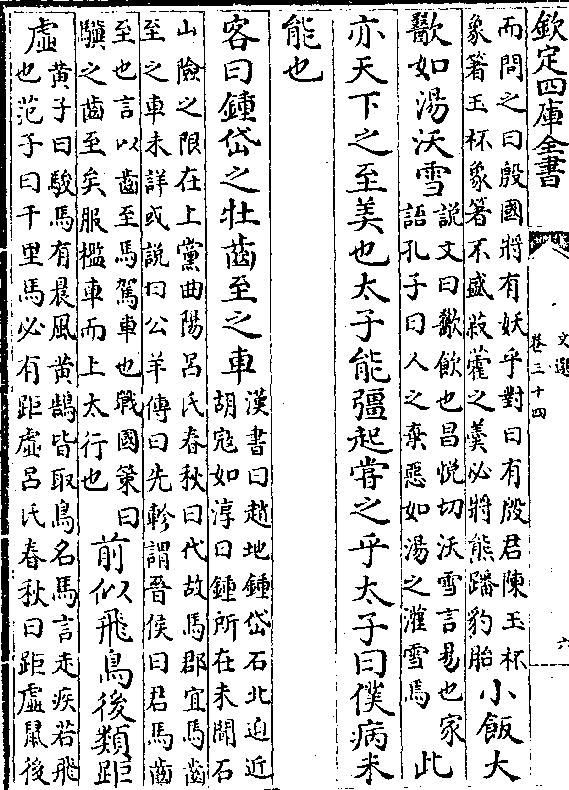 欽定四庫全書
文選
卷三十四
六
而問之曰殷國將有妖乎對曰有殷君陳玉杯
象箸玉杯象箸不盛菽藿之羮必將熊蹯豹胎
小飯大
歠如湯沃雪
說文曰歠飲也昌悅切沃雪言易也家
語孔子曰人之棄惡如湯之灌雪焉
此
亦天下之至美也太子能彊起甞之乎太子曰僕病未
能也
客曰鍾岱之牡齒至之車
漢書曰趙地鍾岱石北迫近
胡寇如淳曰鍾所在未聞石
山險之限在上黨曲陽呂氏春秋曰代故馬郡宜馬齒
至之車未詳或說曰公羊傳曰先軫謂晉侯曰君馬齒
至也言以齒至馬駕車也戰國策曰
驥之齒至矣服檻車而上太行也
前似飛鳥後類距
虛
黄子曰駿馬有晨風黄鵠皆取鳥名馬言走疾若飛
也范子曰千里馬必有距虛呂氏春秋曰距虛鼠後